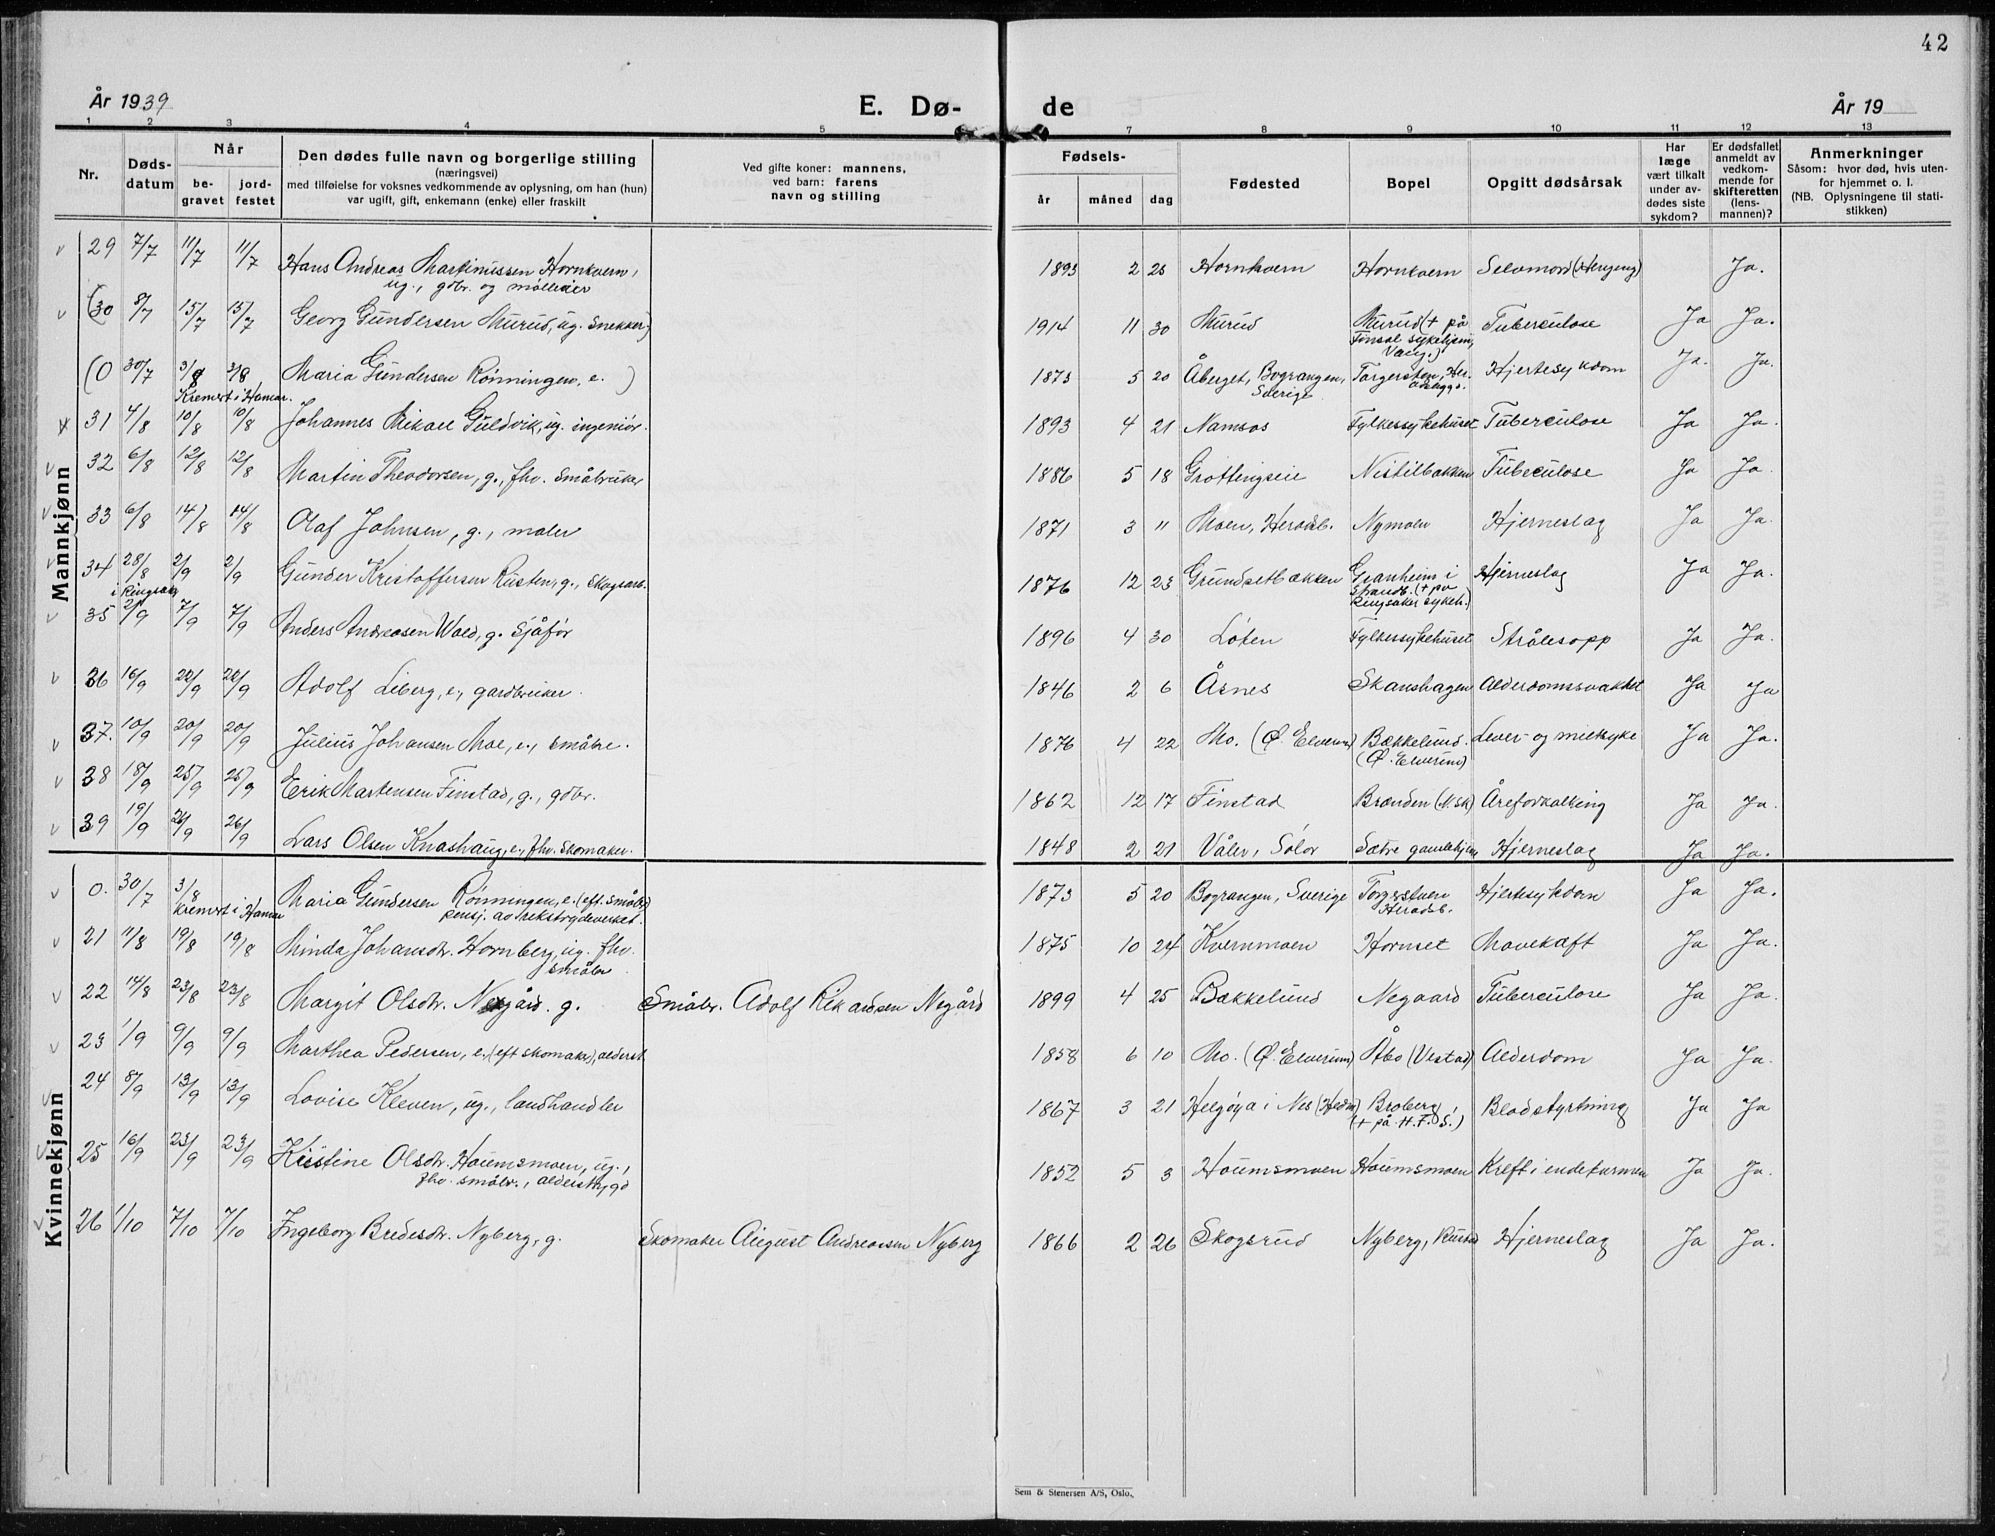 42
År 1939 E. Dø- de År 19
1 2 3 4 5 7 8 9 10 11 12 13
Nr.
Døds-
datum
Når
be-
gravet
jord-
festet
Den dødes fulle navn og borgerlige stilling
(næringsvei)
med tilføielse for voksnes vedkommende av oplysning, om han (hun)
var ugift, gift, enkemann (enke) eller fraskilt
Ved gifte koner: mannens,
ved barn: farens
navn og stilling
Fødsels-
år måned dag
Fødested
Bopel
Opgitt dødsårsak
Har
læge
vært tilkalt
under av-
dødes siste
sykdom?
Er dødsfallet
anmeldt av
vedkom-
mende for
skifteretten
(lens-
mannen)?
Anmerkninger
Såsom: hvor død, hvis uten-
for hjemmet o. l.
(NB. Oplysningene til stati-
stikken)
Mannkjønn
29 7/7 11/7 11/7 Hans Andreas Martinussen Hornkvern, 1893 2 Hornkvern Hornkvern Selvmord (Hengeng) Ja.
ug., gbr. og mølleeier
(30 8/7 15/7 15/7 Georg Gundersen Murud, ug. snekker) 1914 11 30 Murud Murud (+ på Tuberculose Ja Ja.
Finsal sykehjem,
Vang.)
(0 30/7 3/8 3/8 Maria Gundersen Rønningen, e. ) 1873 5 20 Åberget, Bograngen, Hjertesykdom Ja. Ja.
Sverige
Kremert i Hamar.
31 4/8 10/8 10/8 Johannes Mikael Guldvik, ug. ingeniør. 1893 4 21 Namsos Fylkessykehuset Tuberculose Ja Ja.
32 6/8 12/8 12/8 Martin Theodorsen, g., fhv. småbruker 1886 5 18 Grøttingseie Nistilbakken Tubeculose Ja Ja.
33 6/8 14/8 14/8 Olaf Johnsen, g., maler 1871 3 11 Moen, Heradsb. Nymoen Hjerneslag Ja Ja.
34 28/8 2/9 2/9 Gunder Kristoffersen Rusten, g., skogsarb. 1876 12 23 Grundsetbækken Granheim i Hjerneslag Ja Ja.
i Ringsaker
Strandb. (+ på
Ringsaker sykeh.)
35 2/9 7/9 7/9 Anders Andreasen Wold, g. sjåfør 1896 4 30 Løten Fylkessykehuset Strålesopp Ja Ja.
36 16/9 22/9 22/9 Adolf Liberg, e., gardbruker. 1846 2 6 Åsnes Skanshagen Alderdomssvakhet Ja Ja
37. 10/9 20/9 20/9 Julius Johansen Moe, e., småbr. 1876 4 22 Mo. (Ø. Elverum) Bækkelund. Lever- og miltsyke Ja Ja.
(Ø. Elverum)
38 18/9 25/9 25/9 Erik Martensen Finstad, g., gbr. 1862 12 17 Finstad Brænden (N.sk) Åreforkalkning Ja Ja.
39 19/9 26/9 26/9 Lars Olsen Knashaug, e., fhv. skomaker. 1848 2 21 Våler, Solør Sætre gamlehjem Hjerneslag Ja Ja.
Kvinnekjønn
0. 30/7 3/8 Maria Gundersen Rønningen, e. (eft. småbr.) 1873 5 20 Bograngen, Sverige Torgerstuen Hjertesykdom Ja Ja.
Kremert i Hamar pensj. av trekstrydeverket. Heradsb.
21 11/8 19/8 19/8 Minda Johansdtr. Hornberg, ug. fhv. 1875 10 24 Kvernmoen Hornset Mavekæft Ja Ja.
småbr.
22 14/8 23/8 23/8 Margit Olsdtr. Negård. g. Småbr. Adolf Rikardsen Negård 1899 4 25 Bækkelund Negaard Tuberculose Ja Ja.
23 1/9 9/9 9/9 Marthea Pedersen, e. (eft skomaker), alderst. 1858 6 10 Mo. (Ø. Elverum) Åbo (Vestad) Alderdom Ja Ja.
24 8/9 13/9 13/9 Lovise Kleven, ug., landhandler 1867 3 21 Helgøya i Nes (Hedm) Broberg, Blodstyrtning Ja Ja
(+ på H.F.S.)
25 16/9 23/9 23/9 Kristine Olsdtr. Houmsmoen, ug., 1852 5 3 Houmsmoen Houmsmoen Kreft i endetarmen Ja Ja.
fhv. småbr., alderstrygd
26 1/10 7/10 7/10 Ingeborg Bredesdtr. Nyberg, g. Skomaker August Andreassen Nyberg 1866 2 26 Skogsrud Nyberg, Rustad Hjerneslag Ja Ja.
Sem & Stenersen A/S, Oslo.